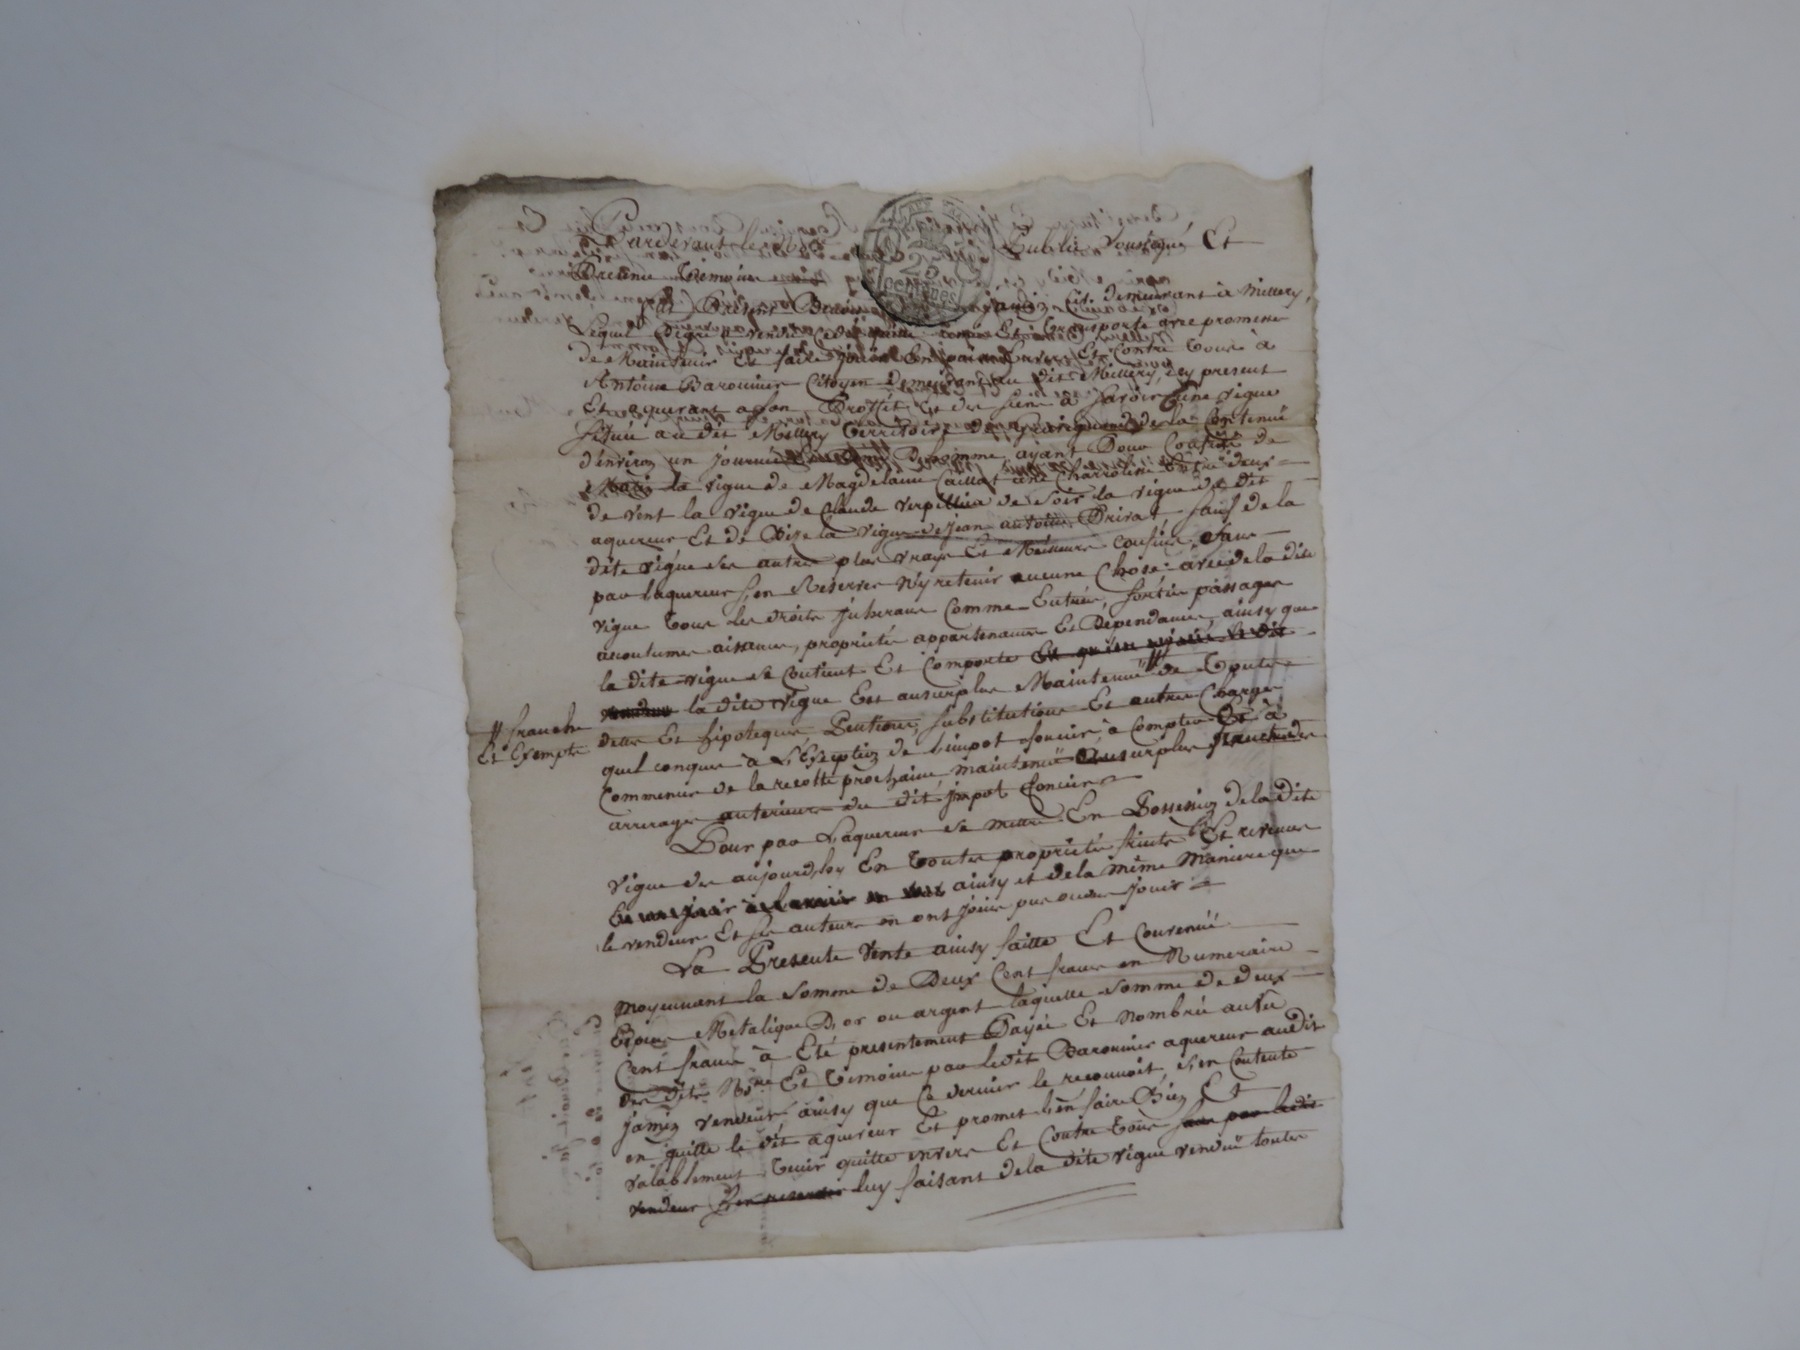 Pardevant le Nore Public Soussigné Et
Presens Temoins
25
CENTIMES
fut Present Benoit jamin Cit. demeurant à Millery,
Lequel de gré a vendu cedé quitté remis Et transporte avec promesse
de Maintenir Et faire jouir En paix Envers Et Contre Tous à
Antoine Baronnier Citoyen demeurant au dit Millery, icy present
Et aquerant a son Proffit Et des siens à Savoir une vigne
Situeé au dit Millery Territoire de la Contenuë
d'environ un journeé D'homme ayant Pour Confins de
Matin la vigne de Magdelaine Caillot une Charroliere Entre deux
de vent la vigne de Claude verpillieu de Soir la vigne du dit
aquereur Et de Bize la vigne de jean antoine Privat Sauf de la
dite vigne ses autres plus vrays Et Meilleurs confins, Sans
par l'aquereur s'en Reserver N'y retenir aucune Chose avec de la dite
vigne Tous les droits jmheraux Comme Entrées, sorties passages
acoutumes aisances, proprietés appartenances Et Dependances, ainsy que
la dite vigne se Contient Et Comporte Et qu'en le dit
vendeur la dite vigne Est ausurplus Maintenuë # de Toutes
# franche
Et Exempte
dettes Et hipoteques, Pentions, substitutions Et autres Charges
quel conques à L'Exception de l'impot foncier, à Compter Et à
Commencer de la recolte prochaine, maintenuë Ausurplus franche des
arrerages anterieurs du dit jmpot foncier
Pour par Laquereur se mettre En Possession de la dite
vigne des aujourd'huy En Toutes proprietés fruits Et revenus
Et en jouir à l'avenir ainsy et de la même Maniere que
le vendeur Et ses auteurs en ont jouis pus ou du jouir
La Presente Vente ainsy faitte Et Convenuë
moyennant la somme de Deux Cent francs en Numeraire
Especes Metalique D'or ou argent laquelle somme de deux
Cent francs à Eté presentement Payeé Et Nombreé au vû
des dits Nre Et Temoins par ledit Baronnier aquereur audit
jamin vendeur ainsy que Ce dernier le reconnoit, s'en Contente
en quitte le dit aquereur Et promet l'en faire Bien Et
valablement Tenir quitte envers Et Contre Tous sans par ledit
vendeur s'en reserver luy faisant de la dite vigne vendüe toutes